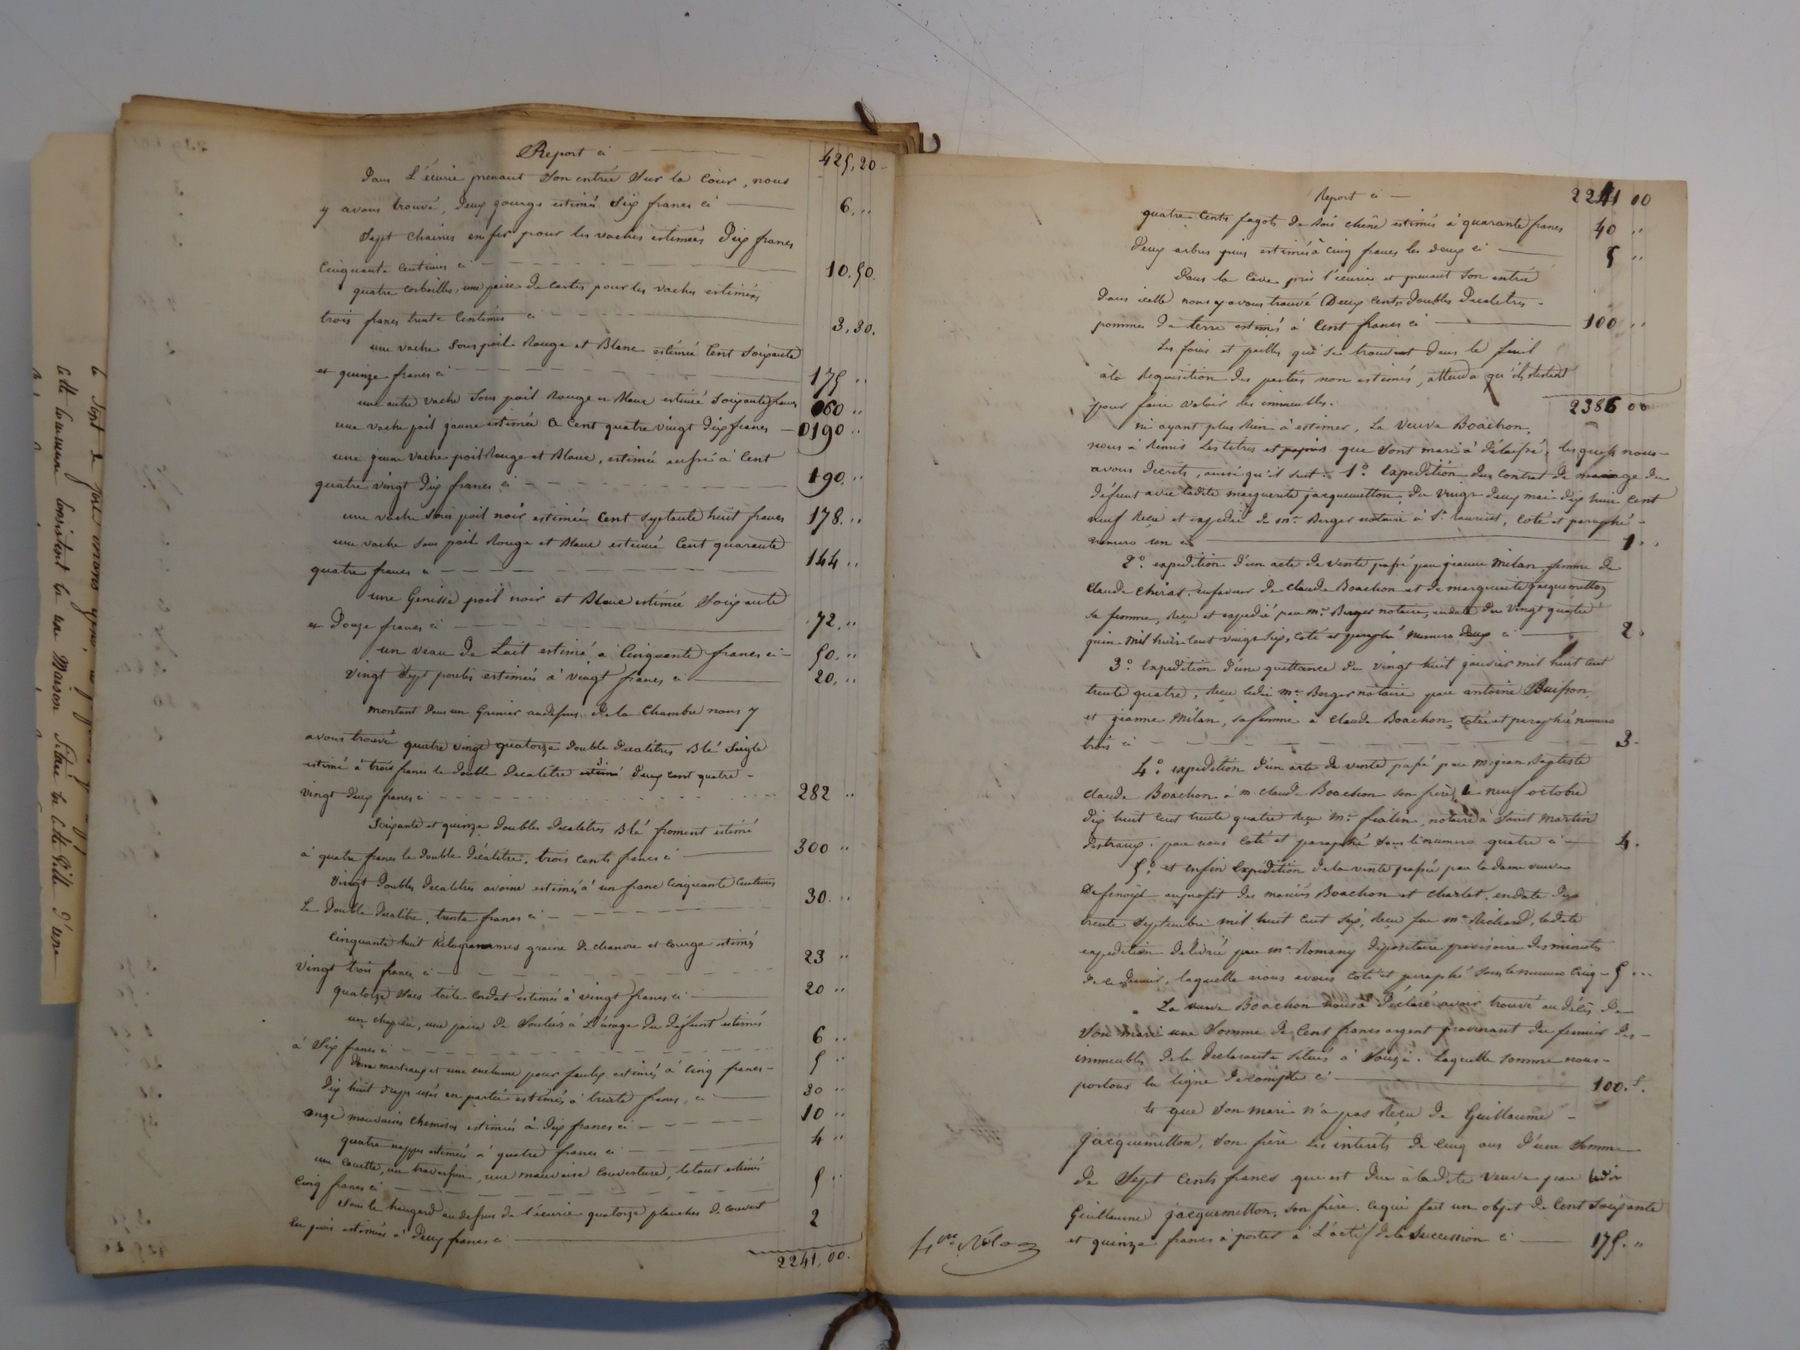 Report ci 425,20
Dans L'écurie prenant Son entrée Sur la Cour, nous
y avons trouvé, deux gourgs estimés Six francs ci 6. "
Sept Chaines en fer pour les vaches estimées Dix francs
Cinquante Centimes ci 10.50.
quatre Corbeilles, une paire de Cartes pour les vaches estimées
trois francs trente Centimes ci 3,30.
une vache Sous poil Rouge et Blanc estimée Cent Soixante
et quinze francs ci 175 "
une autre vache Sous poil Rouge et Blanc estimée Soixante francs 060 "
une vache poil jaune estimée a Cent quatre vingt Dix francs 0190 "
une jeune vache poil Rouge et Blanc, estimée aussi à Cent
quatre vingt Dix francs ci 190. "
une vache Sous poil noir estimée Cent Septante huit francs 178. "
une vache Sous poil Rouge et Blanc estimée Cent quarante
quatre francs ci 144 "
une Genisse poil noir et Blanc estimée Soixante
et Douze francs ci 72. "
un veau de Lait estimé a Cinquante francs ci 50. "
Vingt Sept poules estimées à vingt francs ci 20. "
Montant dans un Grenier audessus de la Chambre nous y
avons trouvé quatre vingt quatorze double Decalitres Blé Seigle
estimé à trois francs le double Decalitre estimé Deux cent quatre
vingt Deux francs ci 282 "
Soixante et quinze Doubles Decalitres Blé froment estimé
à quatre francs le double Décalitre, trois cents francs ci 300 "
Vingt Doubles Decalitres avoine estimés à un franc Cinquante Centimes
Le Double Decalitre, trente francs ci 30. "
Cinquante huit Kilogrammes graine de chanvre et Courge estimés
vingt trois francs ci 23 "
quatorze Sacs toile Cordat estimés à vingt francs ci 20 "
un chapeau, une paire de Souliers à L'usage du défunt estimés
à Six francs ci 6 "
Deux marteaux et une enclume pour faulx estimés à Cinq francs 5 "
Dix huit draps usés en partie estimés à trente francs, ci 30 "
onze mauvaises Chemises estimées à Dix francs ci 10 "
quatre nappes estimées à quatre francs ci 4 "
une Couette, un traversin, une mauvaise Couverture, le tout estimés
Cinq francs ci 5 "
Sous le hangard au dessus de l'écurie quatorze planches de couvert
en pins estimées à Deux francs ci 2
2241,00.
Report ci 2241 00
quatre Cents fagots de bois chêne estimés à quarante francs 40 "
Deux arbres pins estimés à cinq francs les deux ci 5 "
Dans la Cave près l'écurie et prenant Son entrée
dans icelle nous y avons trouvé Deux Cents Doubles Decalitres
pommes De terre estimés à Cent francs ci 100 "
Les foins et pailles qui Se trouvent dans le fenil
à la Requisition des parties non estimés, attendu qu'ils restent
pour faire valoir les immeubles. 2386 00
Ni ayant plus Rien à estimer, La Veuve Boachon,
nous à Remis Les titres et papiers que Sont mari à Délaissé, lesquels nous
avons Decrits, ainsi qu'il Suit: 1°. Expedition du Contrat de mariage du
Défunt avec ladite marguerite jacquemetton, du vingt deux mai dix huit Cent
neuf Reçu et expedié de Me. Berger notaire à St. laurent, Coté et paraphé
numero un ci 1 "
2°. expedition d'un acte de vente passé par jeanne Milan femme de
Claude Chirat, enfaveur de Claude Boachon et de marguerite jacquemetton
Sa femme, Reçu et expedié par Me. Berger notaire, endate du Vingt quatre
juin Mil huit Cent vingt Six, Coté et paraphé Numero Deux ci 2 "
3°. Expedition d'une quittance du Vingt huit janvier mil huit Cent
trente quatre, Reçu ledit Me. Berger notaire par antoine Buisson,
et jeanne Milan, Sa femme à Claude Boachon, Cotée et paraphée numero
trois ci 3.
4°. expedition d'un acte de vente passé par M. jean Baptiste
Claude Boachon à M. Claude Boachon Son frère, le neuf octobre
Dix huit Cent trente quatre Reçu Me. fialin, notaire à Saint Martin
Destreaux, par nous Coté et paraphé Sous le numero quatre ci 4.
5°. et enfin Expedition de la vente passée par la dame veuve
au profit des mariés Boachon et Charlet, endate Du
trente Septembre mil huit Cent Six, Reçu par Me. Richard, ladite
expedition Délivrée par Me. Romany Dépositaire provisoire des minutes
de ce dernier, laquelle nous avons Coté et paraphé Sous le numero Cinq 5 "
La veuve Boachon nous à Déclaré avoir trouvé au Décès De
Son Mari une Somme de Cent francs argent provenant du fermier des
immeubles De la Declarante Situés à Souzi. Laquelle Somme nous
portons en ligne De compte ci 100. f.
Et que Son mari n'a pas Reçu de Guillaume
Jacquemetton, Son frère Les interets de Cinq ans d'une Somme
de Sept Cents francs qui est Due à ladite Veuve par ledit
Guillaume Jacquemetton, Son frère. Ce qui fait un objet de Cent Soixante
et quinze francs à porter à L'actif de la Succession ci 175. "
Cette Commune Consistent en un Maison Située en Cette Ville d'une